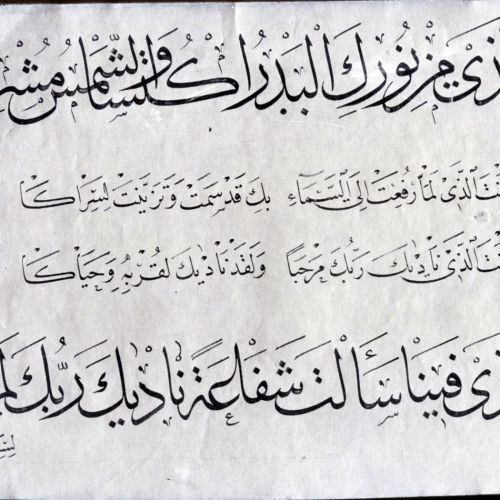 من نورك البدر اكتسا والشمس
الذي لما رفعت الى السماء بك قد سمت وتزينت لسراكا
الذي ناديك ربك مرحبا ولقد ناديك لقربه وحياكا
فينا سألت شفاعة ناديك ربك